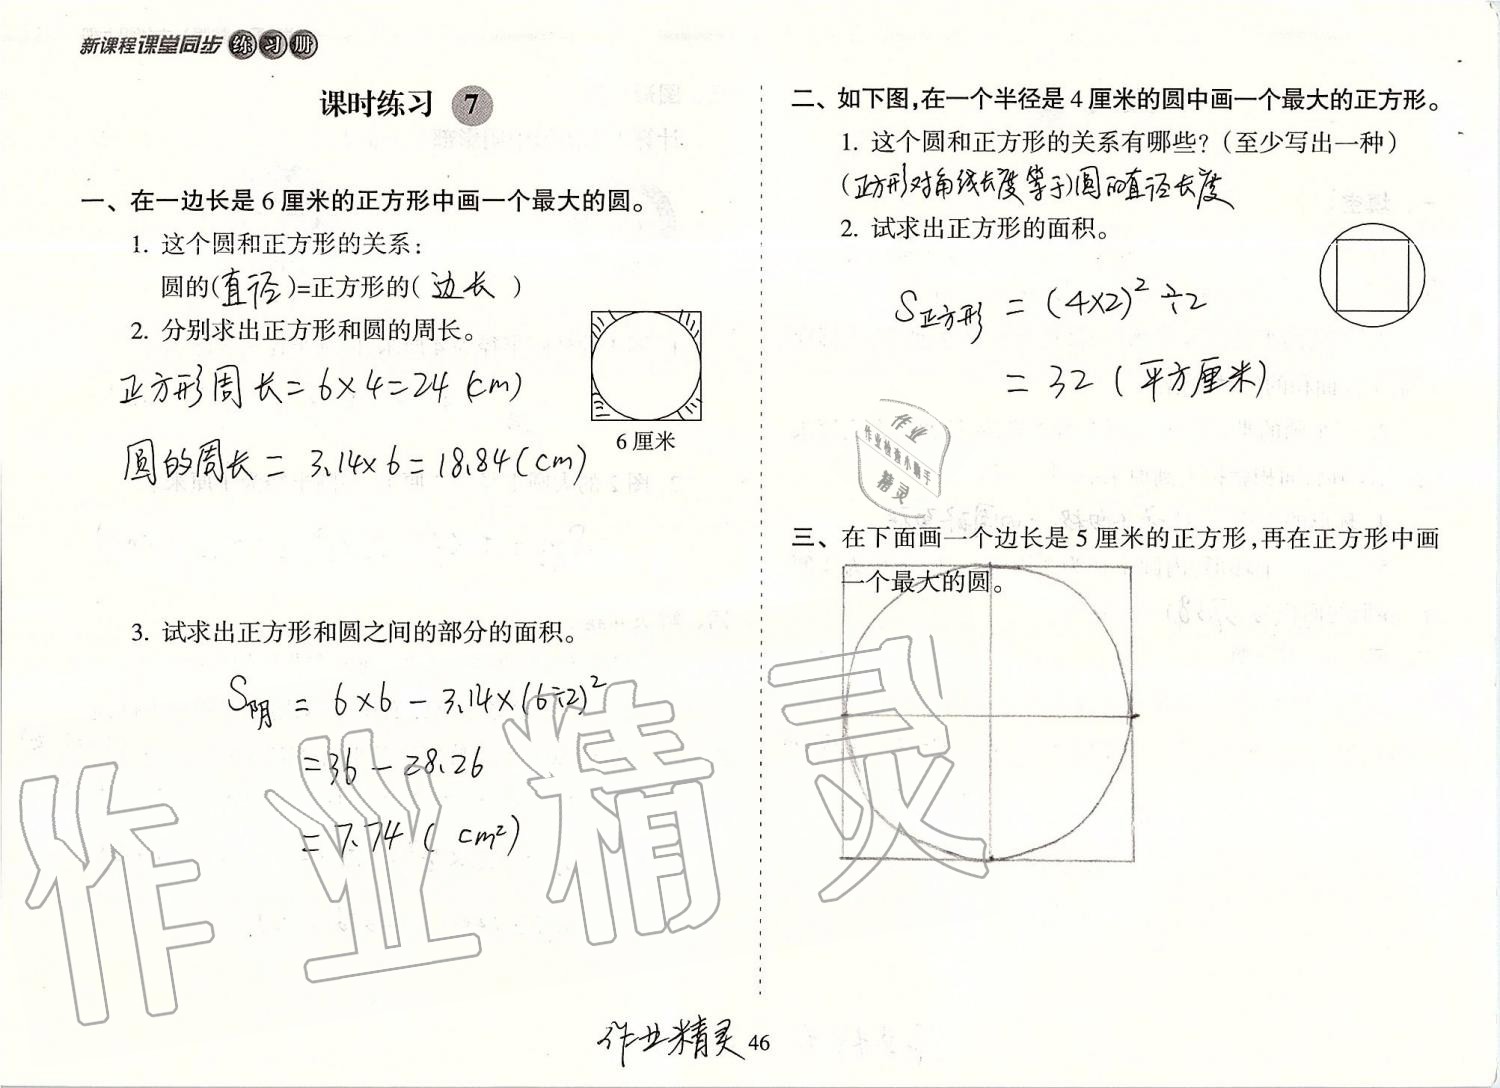 新课程课堂同步练习册
课时练习 7
一、在一边长是6厘米的正方形中画一个最大的圆。
1. 这个圆和正方形的关系：
圆的(直径)=正方形的( 边长 )
2. 分别求出正方形和圆的周长。
正方形周长=6×4=24(cm)
圆的周长=3.14×6=18.84(cm)
6厘米
3. 试求出正方形和圆之间的部分的面积。
S阴=6×6-3.14×(6÷2)²
=36-28.26
=7.74(cm²)
二、如下图,在一个半径是4厘米的圆中画一个最大的正方形。
1. 这个圆和正方形的关系有哪些?(至少写出一种)
(正方形对角线长度等于)圆的直径长度
2. 试求出正方形的面积。
S正方形=(4×2)²÷2
=32(平方厘米)
作业
作业检查小助手
精灵
三、在下面画一个边长是5厘米的正方形,再在正方形中画
一个最大的圆。
作业精灵
作业精灵
46